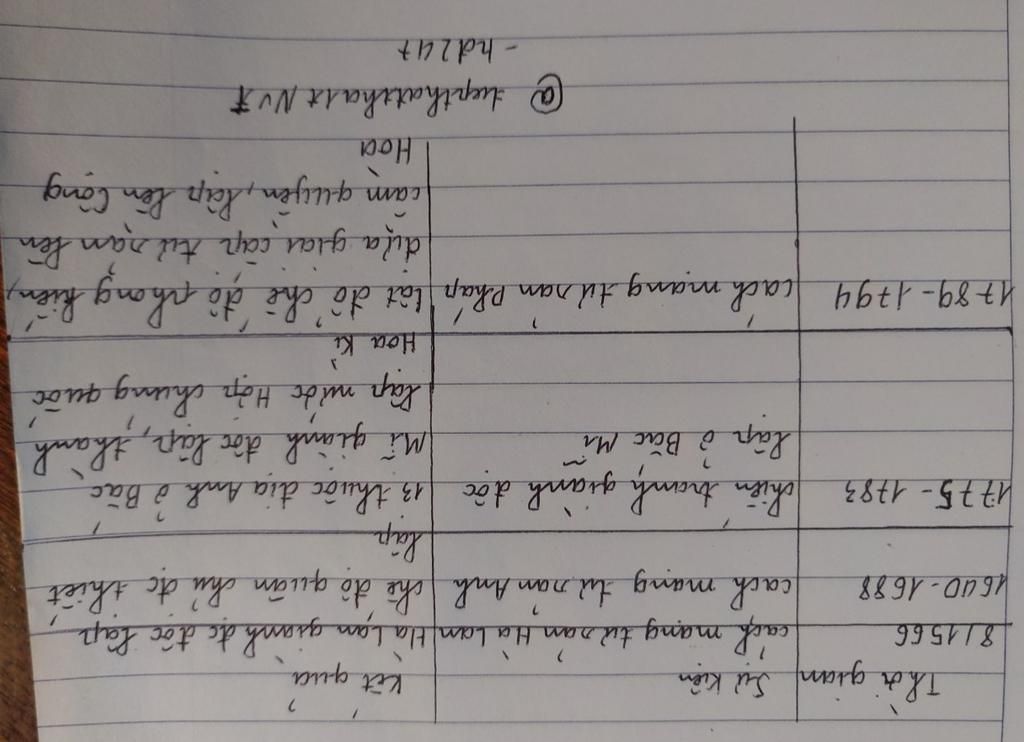 Thời gian Sự kiện Kết quả
8/1566 cách mạng tư sản Hà Lan Hà Lan giành đc độc lập
1640-1688 cách mạng tư sản Anh chế độ quân chủ đc thiết
lập
1775-1783 chiến tranh giành độc 13 thuộc địa Anh ở Bắc
lập ở Bắc Mĩ Mĩ giành độc lập, thành
lập nước Hợp chúng quốc
Hoa Kì
1789-1794 cách mạng tư sản Pháp lật đổ chế độ phong kiến,
đưa giai cấp tư sản lên
cầm quyền, lập lên Cộng
Hoà
- hd247